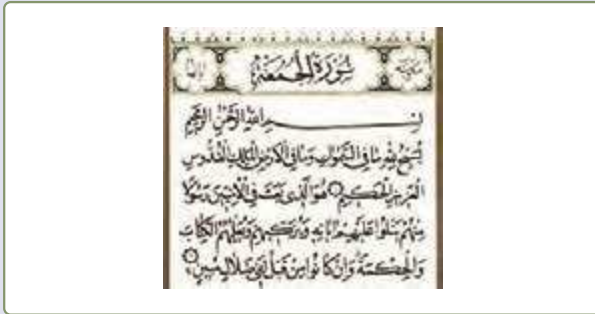 سُورَةُ الْجُمُعَةِ
بِسْمِ اللهِ الرَّحْمٰنِ الرَّحِيمِ
يُسَبِّحُ لِلّٰهِ مَا فِي السَّمٰوَاتِ وَمَا فِي الْاَرْضِ الْمَلِكِ الْقُدُّوسِ
الْعَزِيزِ الْحَكِيمِ هُوَ الَّذِي بَعَثَ فِي الْاُمِّيِّينَ رَسُولًا
مِنْهُمْ يَتْلُوا عَلَيْهِمْ اٰيَاتِهِ وَيُزَكِّيهِمْ وَيُعَلِّمُهُمُ الْكِتَابَ
وَالْحِكْمَةَ وَاِنْ كَانُوا مِنْ قَبْلُ لَفِي ضَلَالٍ مُبِينٍ